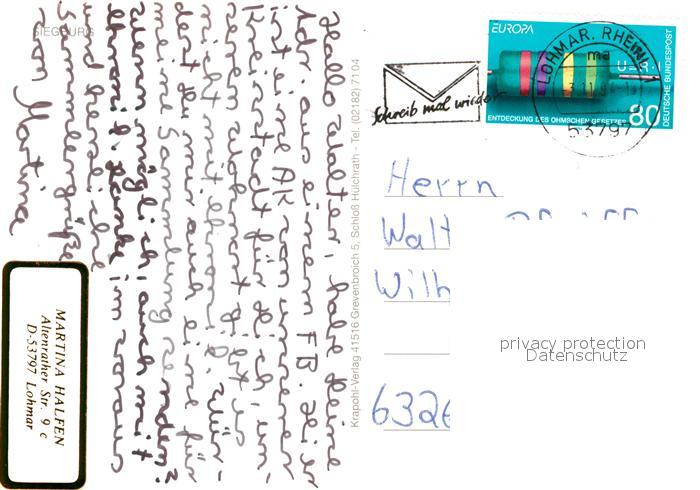 SIEGBURG
Hallo Walter, habe deine
Adr. aus einem FB. Hier
ist eine AK von unserer
Kreisstadt für dich, un-
serem Wohnort gibt es
nicht mit Chronic. Wür-
dest du mir auch eine für
meine Sammlung senden?
wenn möglich auch mit
Chronic. Danke im voraus
und herzliche
Sammlergrüße
von Martina
MARTINA HALFEN
Altenrather Str. 9 c
D-53797 Lohmar
Krapohl-Verlag 41516 Grevenbroich 5, Schloß Hülchrath - Tel. (02182) 71 04
Schreib mal wieder
EUROPA
ENTDECKUNG DES OHMSCHEN GESETZES
80
DEUTSCHE BUNDESPOST
LOHMAR, RHEINL
ma
53797
Herrn
Walt
Wilh
6326
privacy protection
Datenschutz